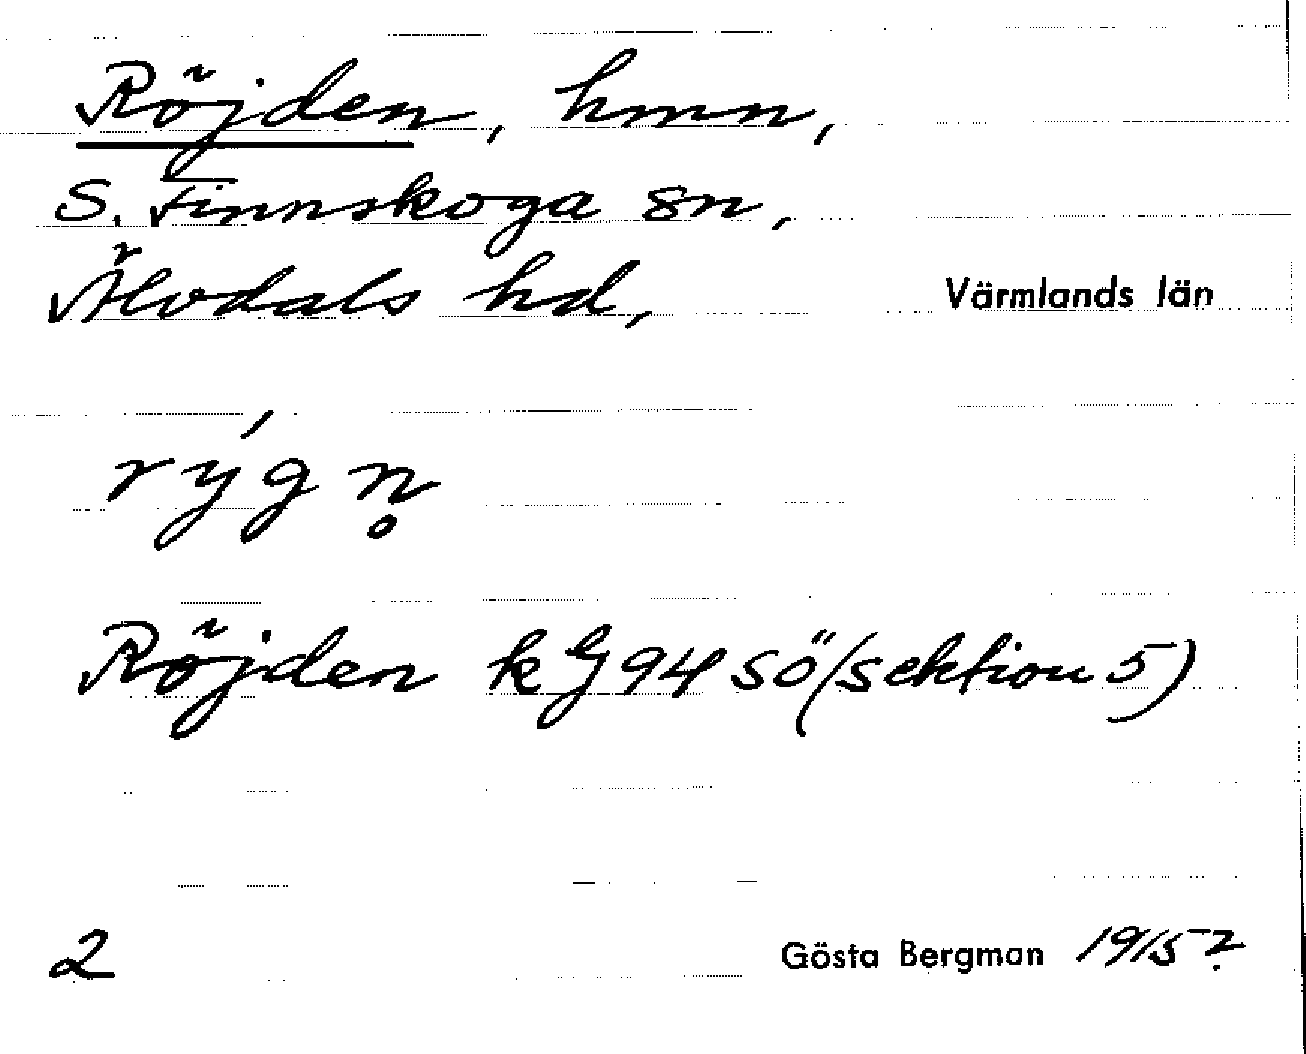 Röjden, hmn,
S. Finnskoga sn,
Älvdals hd, Värmlands län
rýgn̥
Röjden kG94SÖ(sektion 5)
2 Gösta Bergman 1915?